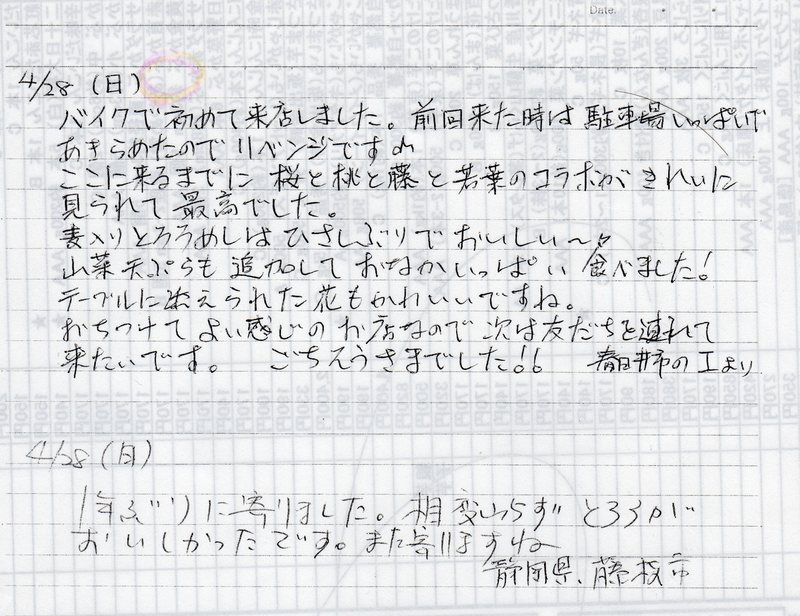 Date
4/28 (日)
バイクで初めて来店しました。前回来た時は駐車場いっぱいで
あきらめたのでリベンジです♪
ここに来るまでに 桜と桃と藤と若葉のコラボがきれいに
見られて最高でした。
麦入りとろろめしはひさしぶりでおいしい〜♪
山菜天ぷらも追加しておなかいっぱい食べました!
テーブルに添えられた花もかわいいですね。
おちつけてよい感じのお店なので次は友だちを連れて
来たいです。 ごちそうさまでした!! 春日井市のIより
4/28 (日)
1年ぶりに寄りました。相変わらずとろろが
おいしかったです。また寄りますね
静岡県、藤枝市